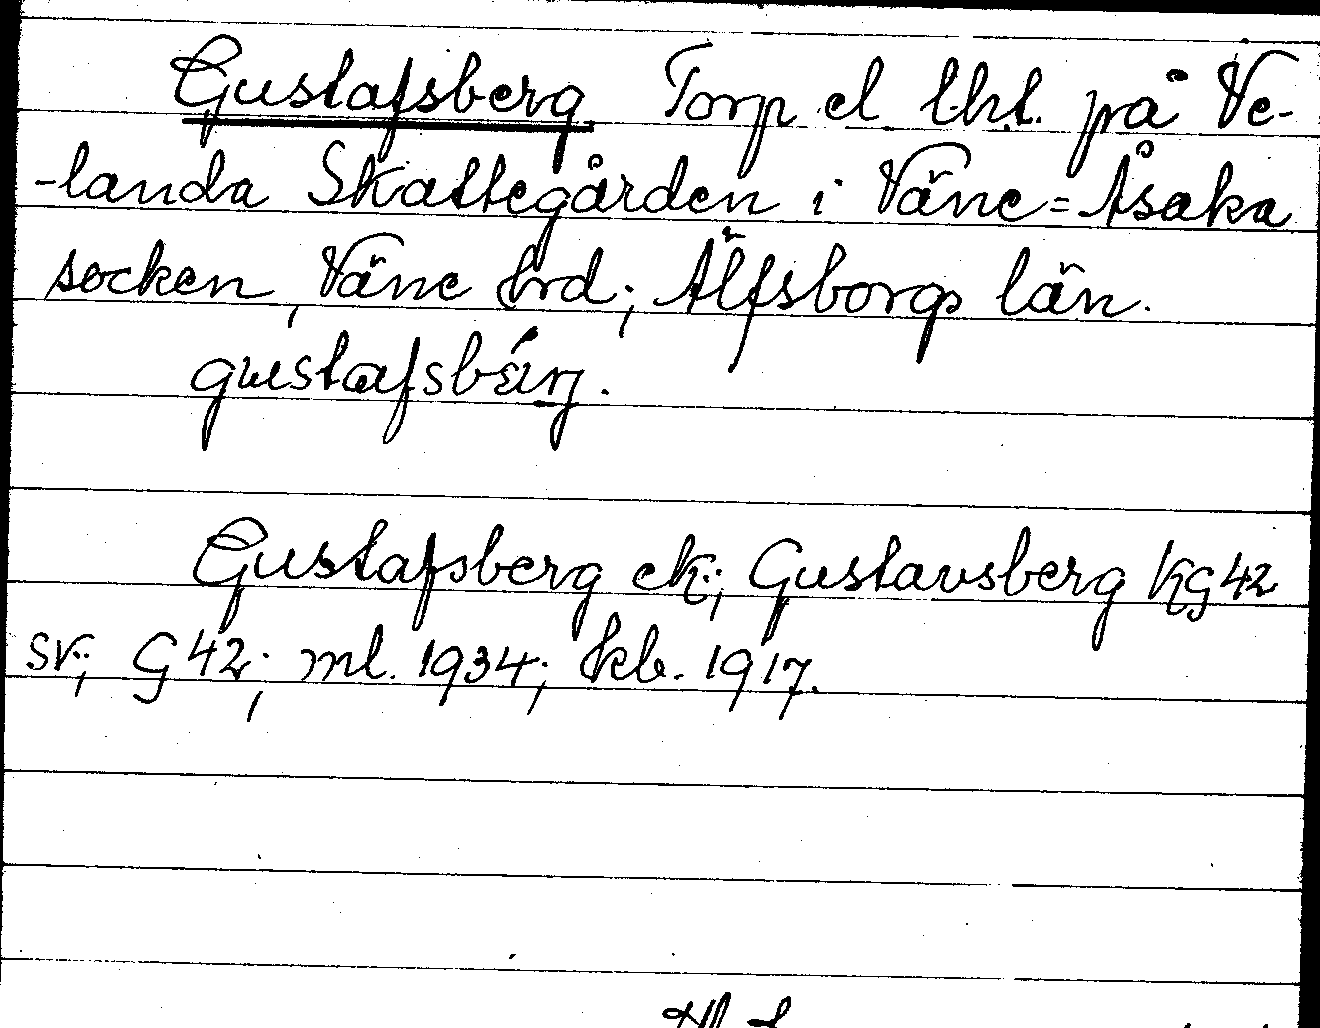 Gustafsberg. Torp el lht. på Ve-
-landa Skattegården i Väne=Åsaka
socken, Väne hrd; Älfsborgs län.
gustafsbärj.
Gustafsberg ek; Gustavsberg KG 42
sv; G 42; ml. 1934; kb. 1917.